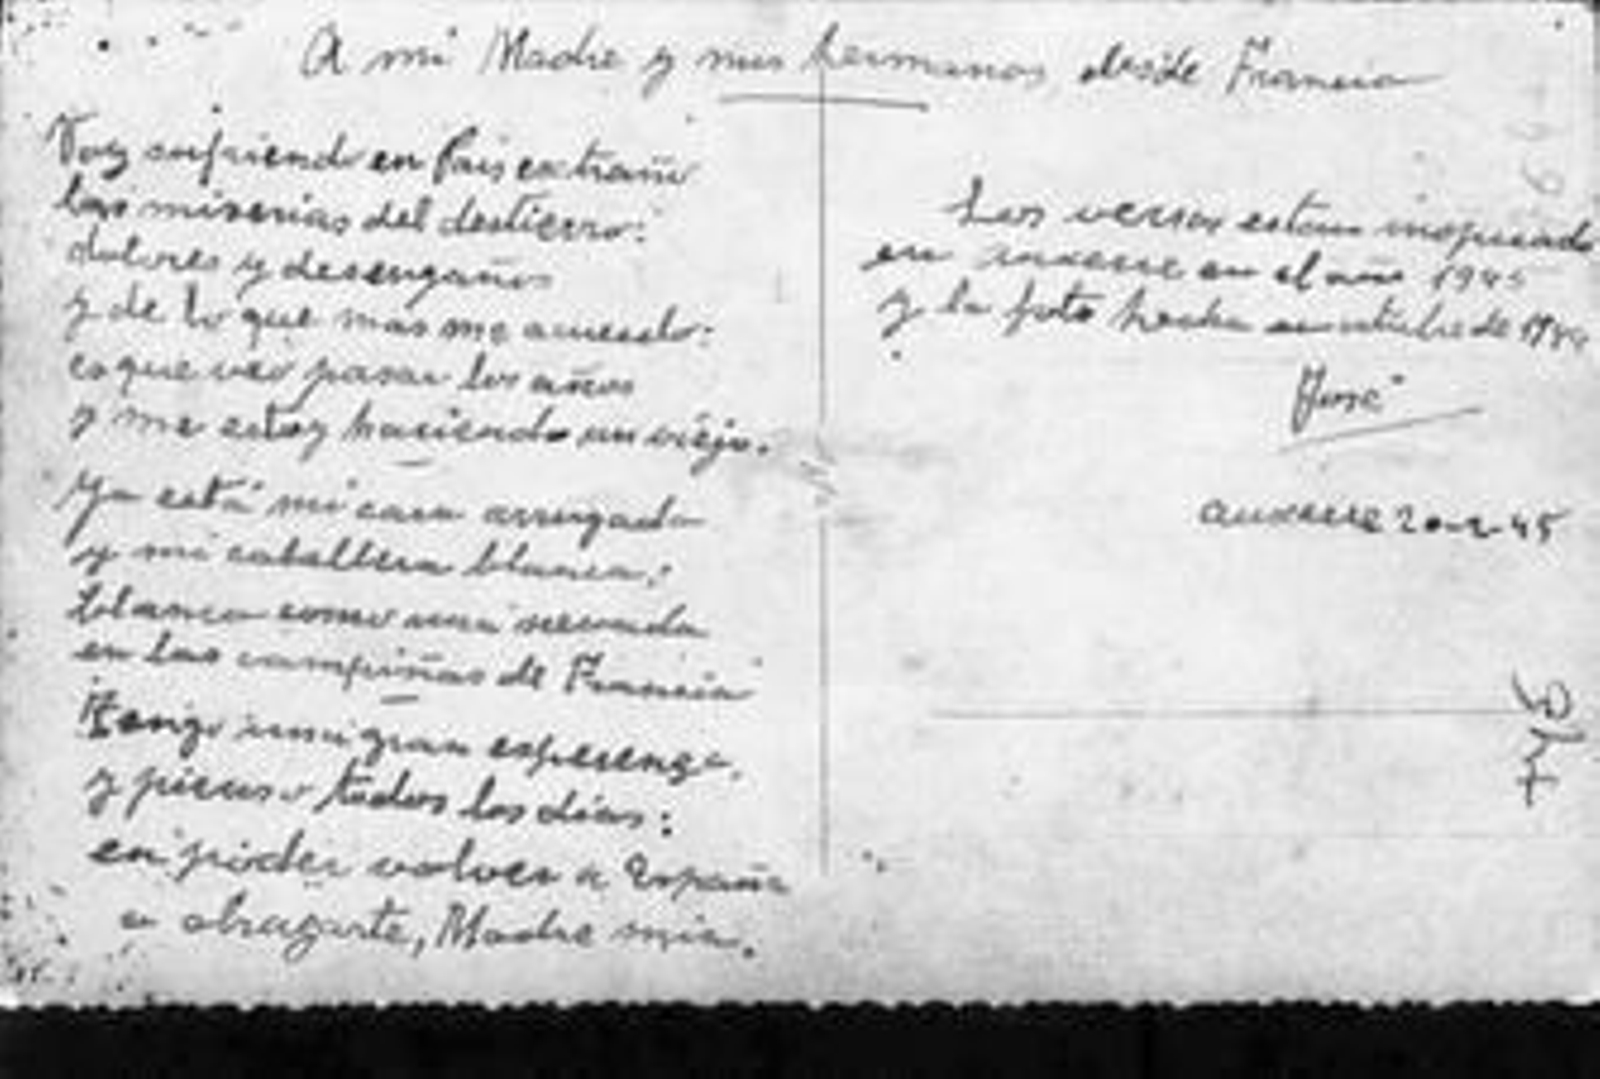 A mi Madre y mis hermanos, desde Francia
Voy sufriendo en Pais extraño
las miserias del destierro:
dolores y desengaños
y de lo que mas me acuerdo:
es que veo pasar los años
y me estoy haciendo un viejo.
Ya está mi cara arrugada
y mi cabellera blanca:
blanca como una nevada
en las campiñas de Francia
Tengo una gran esperanza.
y pienso todos los dias:
en poder volver a España
a abrazarte, Madre mia.
Los versos estan inspirados
en auxerre en el año 1945
y la foto hecha en octubre de
José
auxerre 20-2-45